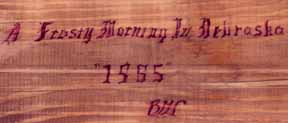 A Frosty Morning In Nebraska
"1885"